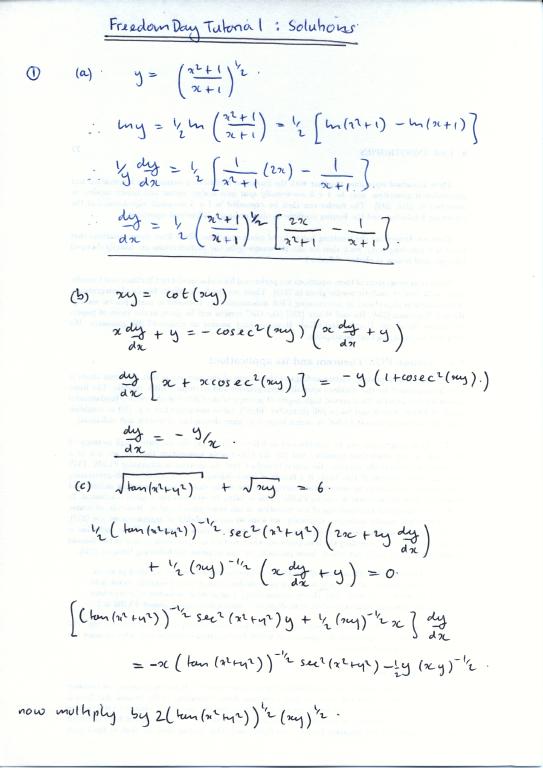 Freedom Day Tutorial : Solutions
① (a) y = ((x²+1)/(x+1))^½ .
∴ ln y = ½ ln ((x²+1)/(x+1)) = ½ [ln(x²+1) − ln(x+1)]
∴ 1/y dy/dx = ½ [1/(x²+1) (2x) − 1/(x+1)].
∴ dy/dx = ½ ((x²+1)/(x+1))^½ [2x/(x²+1) − 1/(x+1)].
(b) xy = cot(xy)
x dy/dx + y = − cosec²(xy) (x dy/dx + y)
dy/dx [x + x cosec²(xy)] = −y (1+cosec²(xy).)
dy/dx = − y/x .
(c) √tan(x²+y²) + √xy = 6.
½ (tan(x²+y²))^−½ . sec²(x²+y²) (2x + 2y dy/dx)
+ ½ (xy)^−½ (x dy/dx + y) = 0.
[(tan(x²+y²))^−½ sec²(x²+y²) y + ½ (xy)^−½ x] dy/dx
= −x (tan(x²+y²))^−½ sec²(x²+y²) − ½ y (xy)^−½ .
now multiply by 2(tan(x²+y²))^½ (xy)^½ .